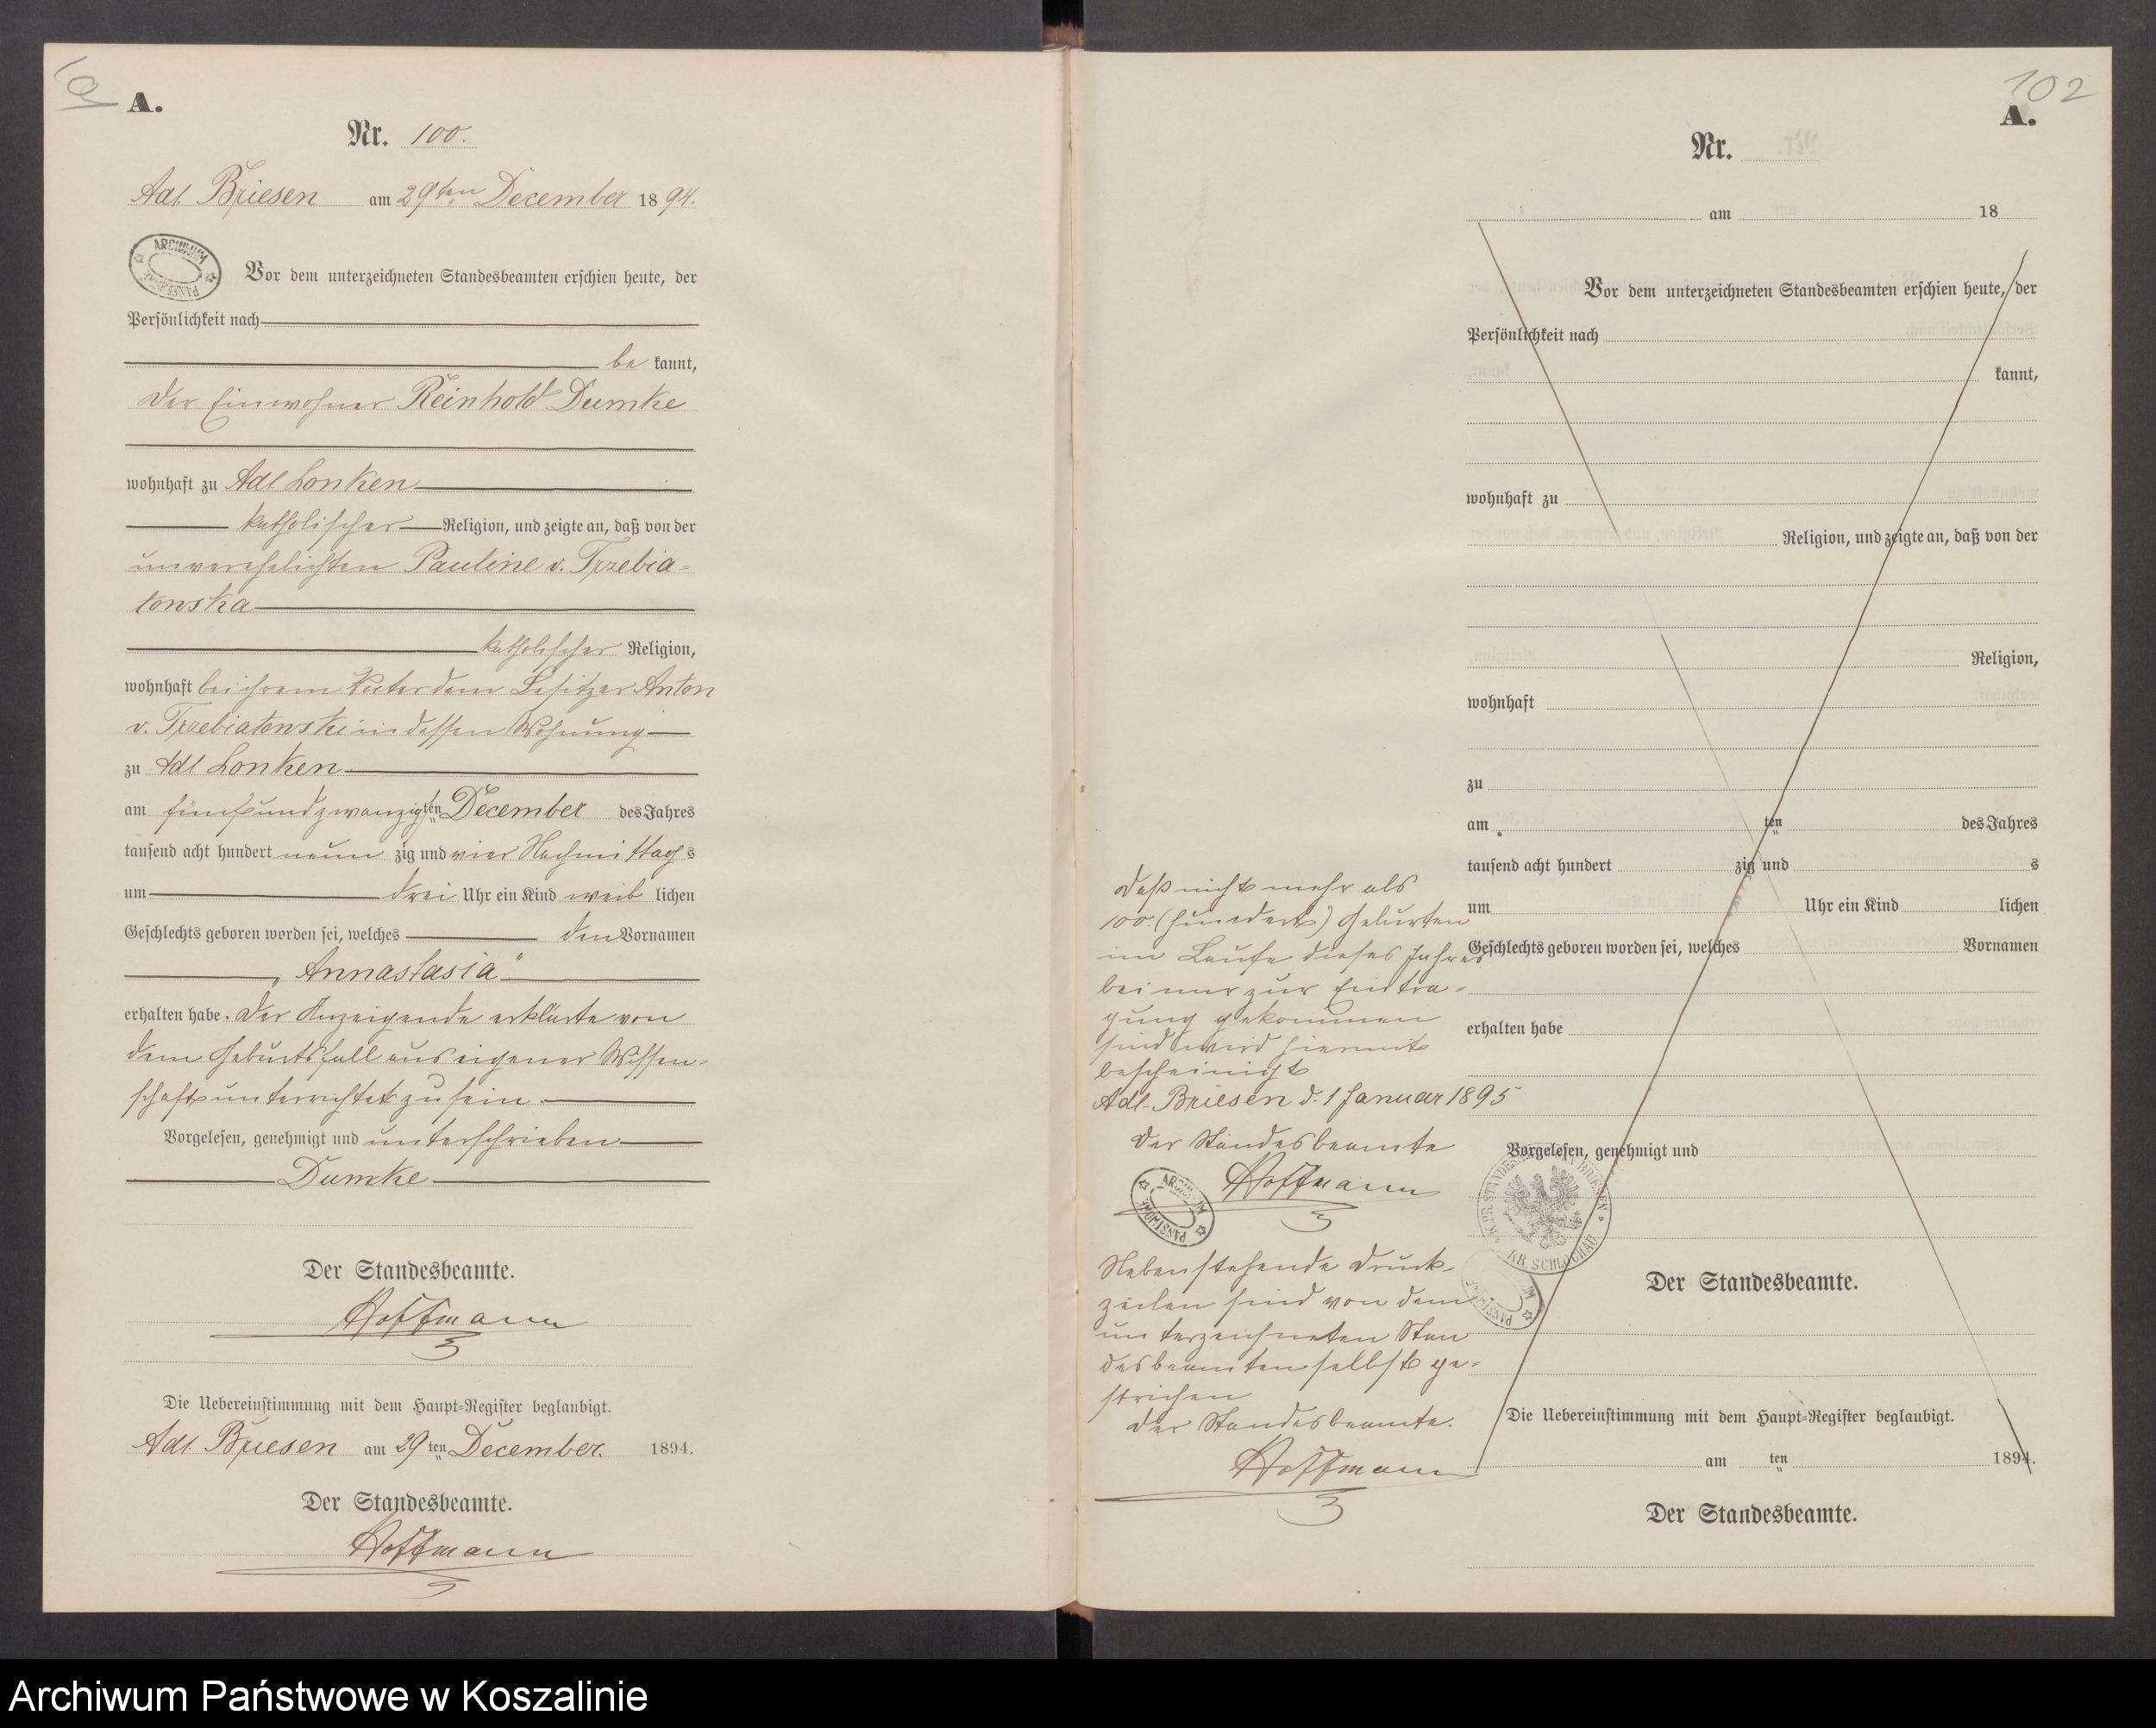 A.
Nr. 100.
Adl. Briesen am 29ten December 1894.
ARCHIWUM PAŃSTWOWE
Vor dem unterzeichneten Standesbeamten erschien heute, der
Persönlichkeit nach
be kannt,
der Einwohner Reinhold Dumke
wohnhaft zu Adl Lonken
katholischer Religion, und zeigte an, daß von der
unverehelichten Pauline v. Trzebia-
towska
katholischer Religion,
wohnhaft bei ihrem Vater dem Besitzer Anton
v. Trzebiatowski in dessen Wohnung
zu Adl Lonken
am fünfundzwanzigsten December des Jahres
tausend acht hundert neun zig und vier Nachmittags
um drei Uhr ein Kind weib lichen
Geschlechts geboren worden sei, welches den Vornamen
„Annastasia"
erhalten habe. Der Anzeigende erklärte von
dem Geburtsfall aus eigener Wissen-
schaft unterrichtet zu sein.
Vorgelesen, genehmigt und unterschrieben
Dumke
Der Standesbeamte.
Hoffmann
Die Uebereinstimmung mit dem Haupt-Register beglaubigt.
Adl Briesen am 29 ten December. 1894.
Der Standesbeamte.
Hoffmann
102
A.
Nr.
am 18
Vor dem unterzeichneten Standesbeamten erschien heute, der
Persönlichkeit nach
kannt,
wohnhaft zu
Religion, und zeigte an, daß von der
Religion,
wohnhaft
zu
am ten des Jahres
tausend acht hundert zig und s
um Uhr ein Kind lichen
Geschlechts geboren worden sei, welches Vornamen
erhalten habe
Vorgelesen, genehmigt und
Der Standesbeamte.
Die Uebereinstimmung mit dem Haupt-Register beglaubigt.
am ten 1894.
Der Standesbeamte.
Daß nicht mehr als
100 (hundert) Geburten
im Laufe dieses Jahres
bei mir zur Eintra-
gung gekommen
sind wird hiermit
bescheinigt
Adl. Briesen d. 1 Januar 1895
Der Standesbeamte
Hoffmann
ARCHIWUM PAŃSTWOWE
KR. SCHLOCHAU
Nebenstehende Druck-
zeilen sind von dem
unterzeichneten Stan
desbeamten selbst ge-
strichen
Der Standesbeamte.
Hoffmann
Archiwum Państwowe w Koszalinie